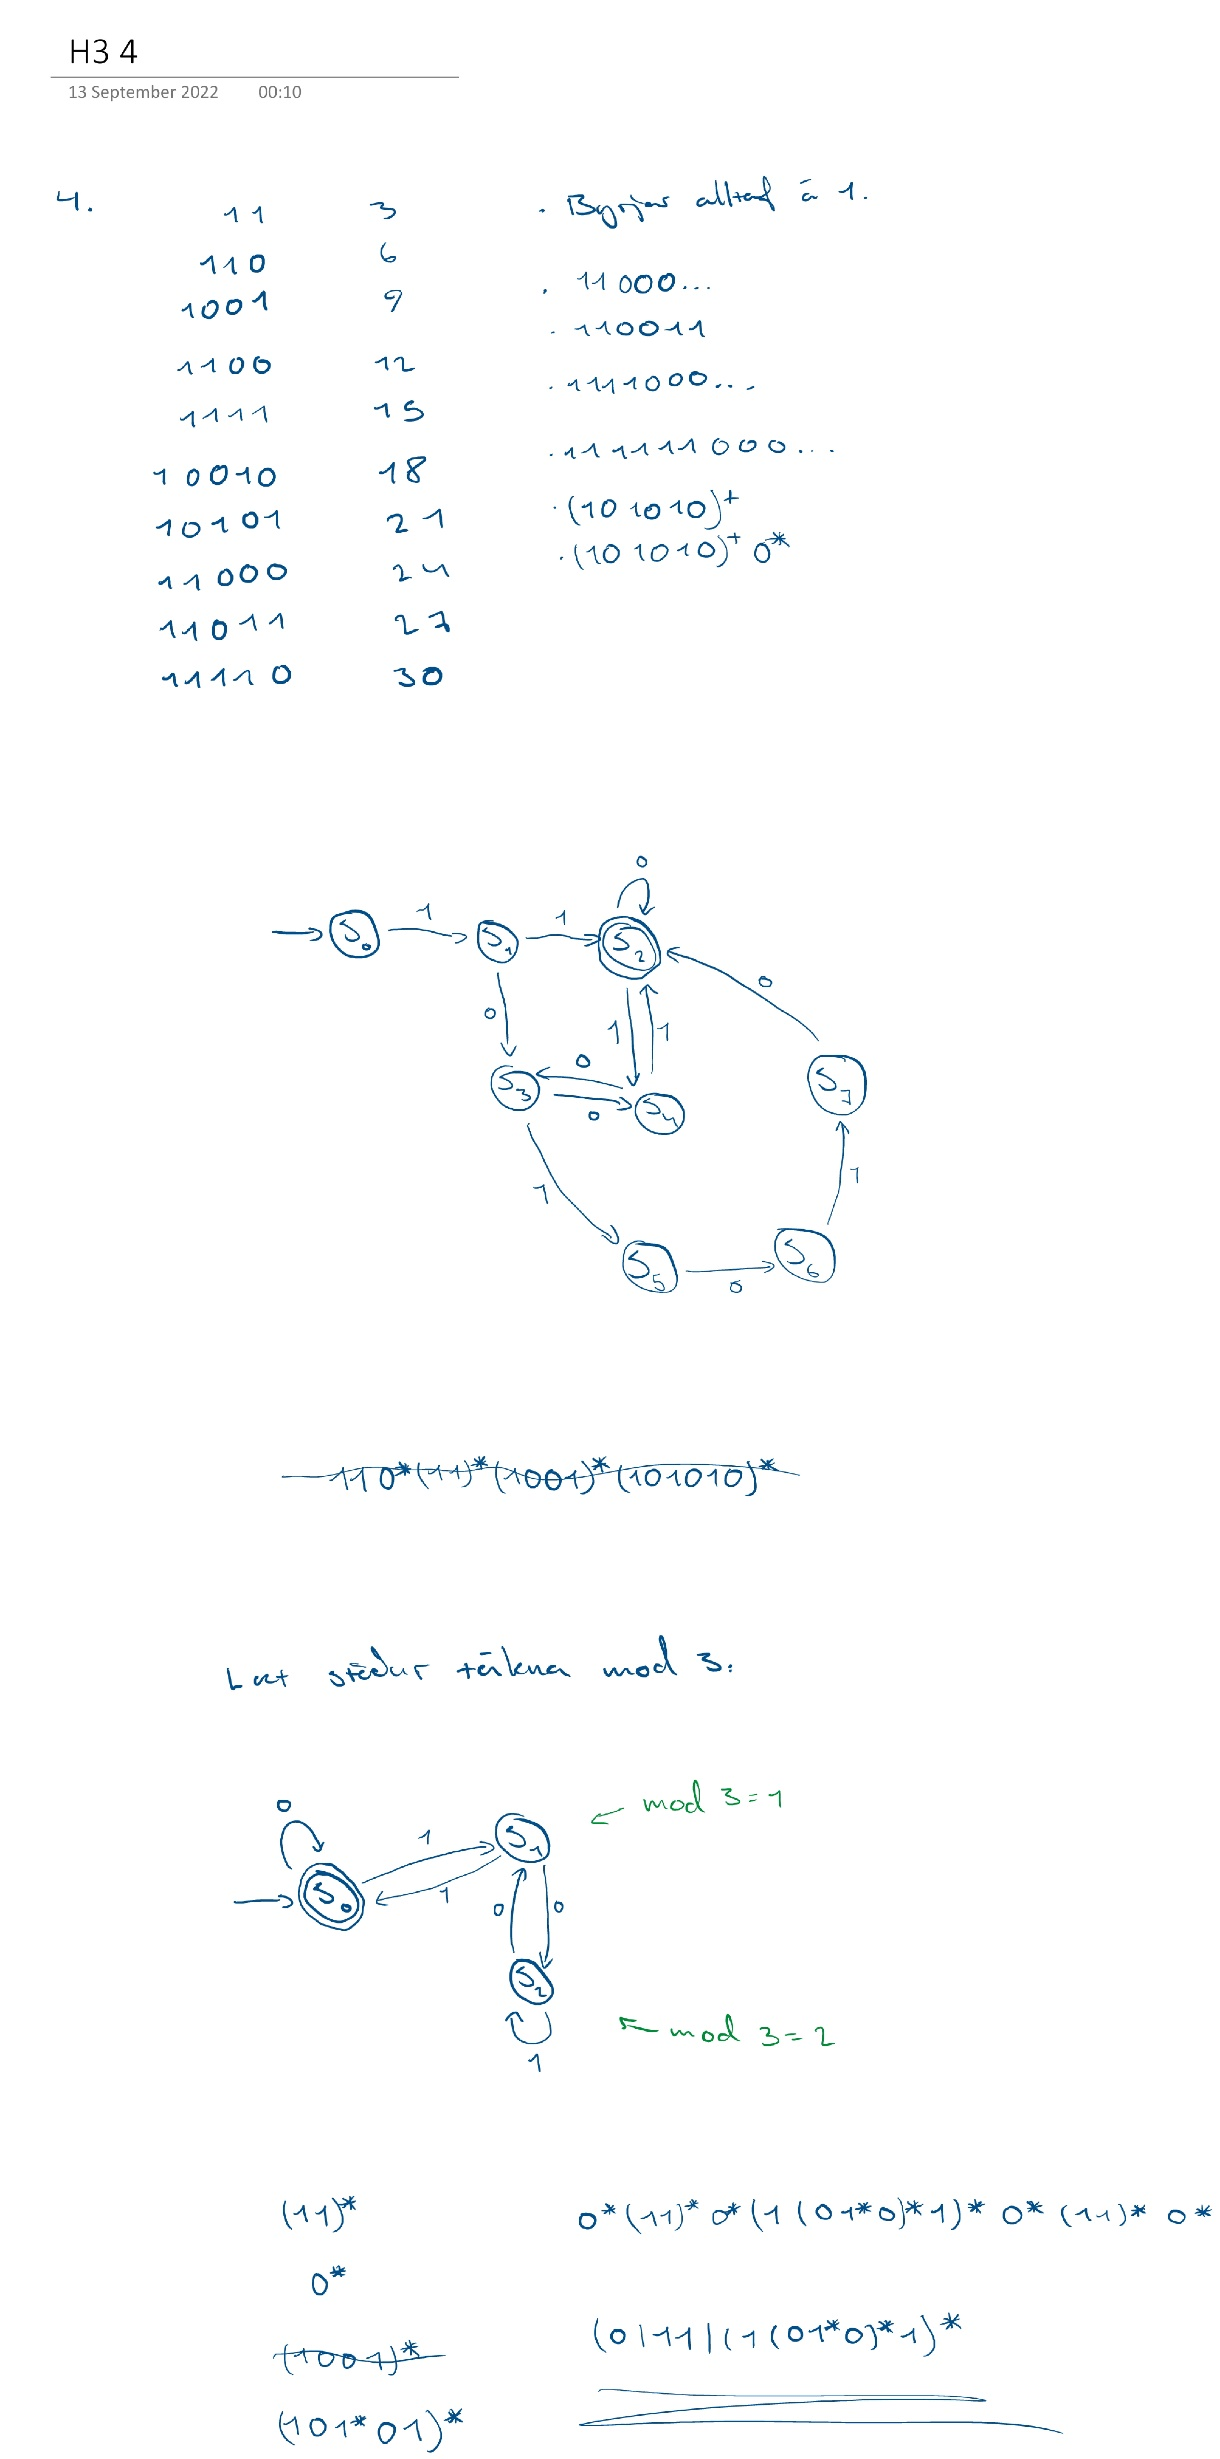 H3 4
13 September 2022 00:10
4.
11 3
110 6
1001 9
1100 12
1111 15
10010 18
10101 21
11000 24
11011 27
11110 30
· Byrjar alltaf á 1.
· 11000...
· 110011
· 1111000...
· 111111000...
· (101010)+
· (101010)+ 0*
0
S0 1 S1 1 S2
0
0 1 1
S3 0 0 S4 S7
1 1
S5 0 S6
110*(11)*(1001)*(101010)*
Lát stöður tákna mod 3.
0 1 S1 ← mod 3 = 1
S0 1 0 0
S2
← mod 3 = 2
1
(11)* 0*(11)* 0*(1(01*0)*1)* 0* (11)* 0*
0*
(1001)* (0|11|(1(01*0)*1)*
(101*01)*